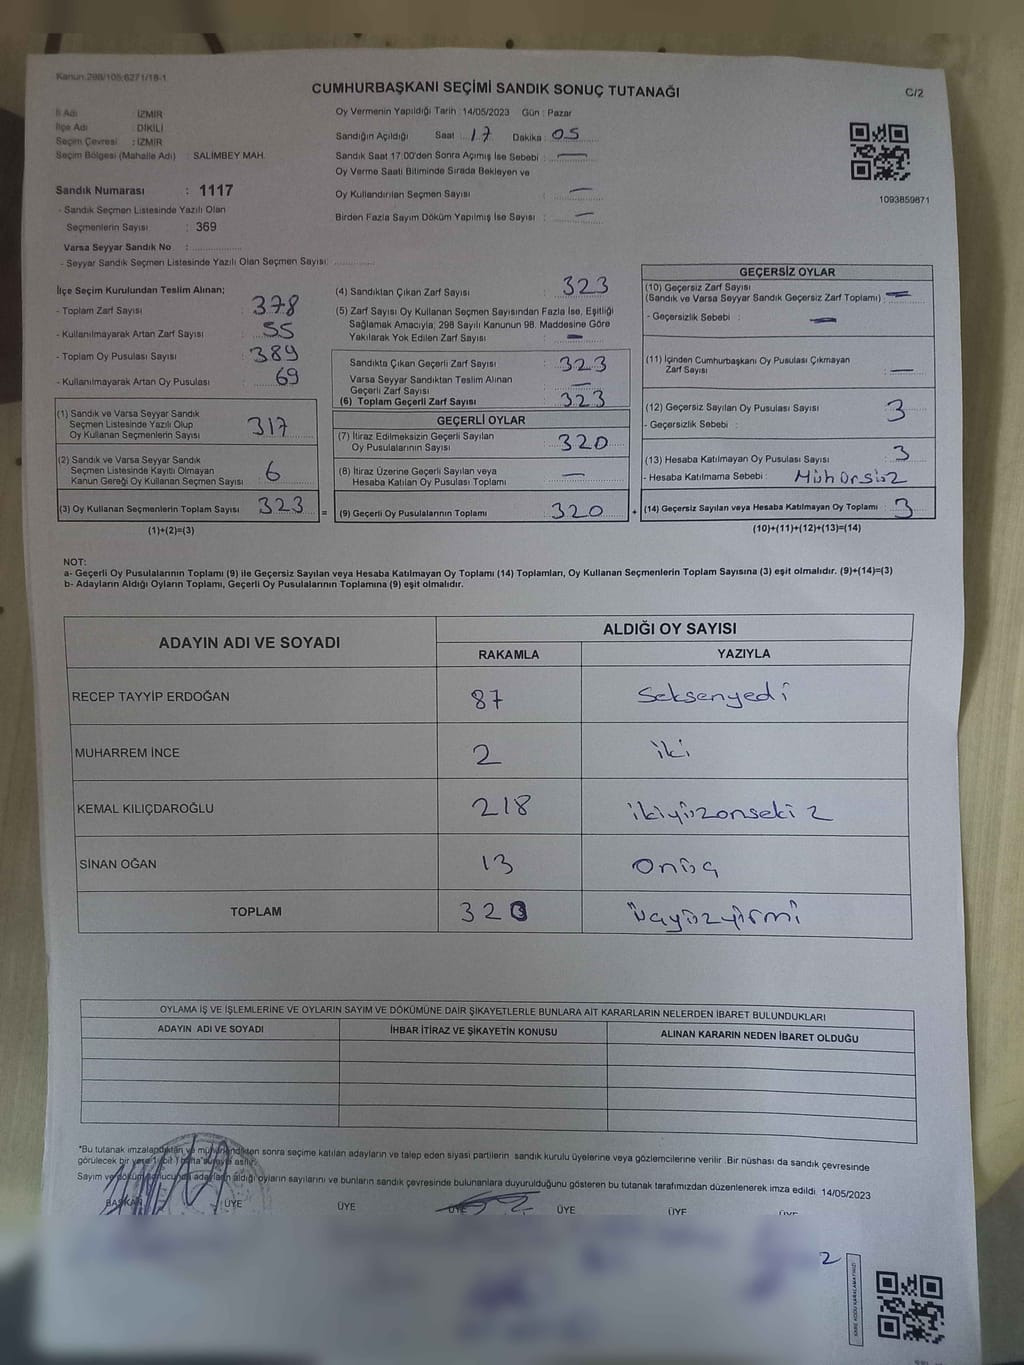 Kanun:298/105;6271/18-1
CUMHURBAŞKANI SEÇİMİ SANDIK SONUÇ TUTANAĞI
C/2
İl Adı : İZMİR
İlçe Adı : DİKİLİ
Seçim Çevresi : İZMİR
Seçim Bölgesi (Mahalle Adı) : SALİMBEY MAH.
Sandık Numarası : 1117
- Sandık Seçmen Listesinde Yazılı Olan
Seçmenlerin Sayısı : 369
Varsa Seyyar Sandık No :
- Seyyar Sandık Seçmen Listesinde Yazılı Olan Seçmen Sayısı:
Oy Vermenin Yapıldığı Tarih : 14/05/2023 Gün : Pazar
Sandığın Açıldığı Saat : 17 Dakika : 05
Sandık Saat 17.00'den Sonra Açımış İse Sebebi : —
Oy Verme Saati Bitiminde Sırada Bekleyen ve
Oy Kullandırılan Seçmen Sayısı : —
Birden Fazla Sayım Döküm Yapılmış İse Sayısı : —
1093859871
İlçe Seçim Kurulundan Teslim Alınan;
- Toplam Zarf Sayısı : 378
- Kullanılmayarak Artan Zarf Sayısı : 55
- Toplam Oy Pusulası Sayısı : 389
- Kullanılmayarak Artan Oy Pusulası : 69
(1) Sandık ve Varsa Seyyar Sandık
Seçmen Listesinde Yazılı Olup
Oy Kullanan Seçmenlerin Sayısı : 317
(2) Sandık ve Varsa Seyyar Sandık
Seçmen Listesinde Kayıtlı Olmayan
Kanun Gereği Oy Kullanan Seçmen Sayısı : 6
(3) Oy Kullanan Seçmenlerin Toplam Sayısı : 323
(1)+(2)=(3)
(4) Sandıktan Çıkan Zarf Sayısı : 323
(5) Zarf Sayısı Oy Kullanan Seçmen Sayısından Fazla İse, Eşitliği
Sağlamak Amacıyla; 298 Sayılı Kanunun 98. Maddesine Göre
Yakılarak Yok Edilen Zarf Sayısı : —
Sandıkta Çıkan Geçerli Zarf Sayısı : 323
Varsa Seyyar Sandıktan Teslim Alınan
Geçerli Zarf Sayısı : —
(6) Toplam Geçerli Zarf Sayısı : 323
GEÇERLİ OYLAR
(7) İtiraz Edilmeksizin Geçerli Sayılan
Oy Pusulalarının Sayısı : 320
(8) İtiraz Üzerine Geçerli Sayılan veya
Hesaba Katılan Oy Pusulası Toplamı : —
= (9) Geçerli Oy Pusulalarının Toplamı : 320 +
GEÇERSİZ OYLAR
(10) Geçersiz Zarf Sayısı
(Sandık ve Varsa Seyyar Sandık Geçersiz Zarf Toplamı) : —
- Geçersizlik Sebebi : —
(11) İçinden Cumhurbaşkanı Oy Pusulası Çıkmayan
Zarf Sayısı : —
(12) Geçersiz Sayılan Oy Pusulası Sayısı : 3
- Geçersizlik Sebebi :
(13) Hesaba Katılmayan Oy Pusulası Sayısı : 3
- Hesaba Katılmama Sebebi : Mühürsüz
(14) Geçersiz Sayılan veya Hesaba Katılmayan Oy Toplamı : 3
(10)+(11)+(12)+(13)=(14)
NOT:
a- Geçerli Oy Pusulalarının Toplamı (9) ile Geçersiz Sayılan veya Hesaba Katılmayan Oy Toplamı (14) Toplamları, Oy Kullanan Seçmenlerin Toplam Sayısına (3) eşit olmalıdır. (9)+(14)=(3)
b- Adayların Aldığı Oyların Toplamı, Geçerli Oy Pusulalarının Toplamına (9) eşit olmalıdır.
ADAYIN ADI VE SOYADI
ALDIĞI OY SAYISI
RAKAMLA YAZIYLA
RECEP TAYYİP ERDOĞAN 87 Seksenyedi
MUHARREM İNCE 2 iki
KEMAL KILIÇDAROĞLU 218 ikiyüzonsekiz
SİNAN OĞAN 13 Onüç
TOPLAM 320 üçyüzyirmi
OYLAMA İŞ VE İŞLEMLERİNE VE OYLARIN SAYIM VE DÖKÜMÜNE DAİR ŞİKAYETLERLE BUNLARA AİT KARARLARIN NELERDEN İBARET BULUNDUKLARI
ADAYIN ADI VE SOYADI İHBAR İTİRAZ VE ŞİKAYETİN KONUSU ALINAN KARARIN NEDEN İBARET OLDUĞU
*Bu tutanak imzalandıktan ve mühürlendikten sonra seçime katılan adayların ve talep eden siyasi partilerin sandık kurulu üyelerine veya gözlemcilerine verilir. Bir nüshası da sandık çevresinde
görülecek bir yere 1 (bir) hafta süreyle asılır.
Sayım ve döküm sonucunda adayların aldığı oyların sayılarını ve bunların sandık çevresinde bulunanlara duyurulduğunu gösteren bu tutanak tarafımızdan düzenlenerek imza edildi. 14/05/2023
BAŞKAN ÜYE ÜYE ÜYE ÜYE ÜYE ÜYE
2